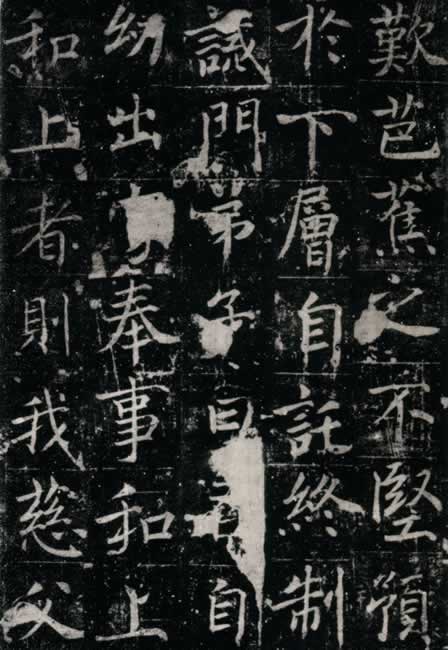 歎芭蕉之不堅預
於下層自託終制
誡門弟子曰吾自
幼出奉事和上
和上者則我慈父